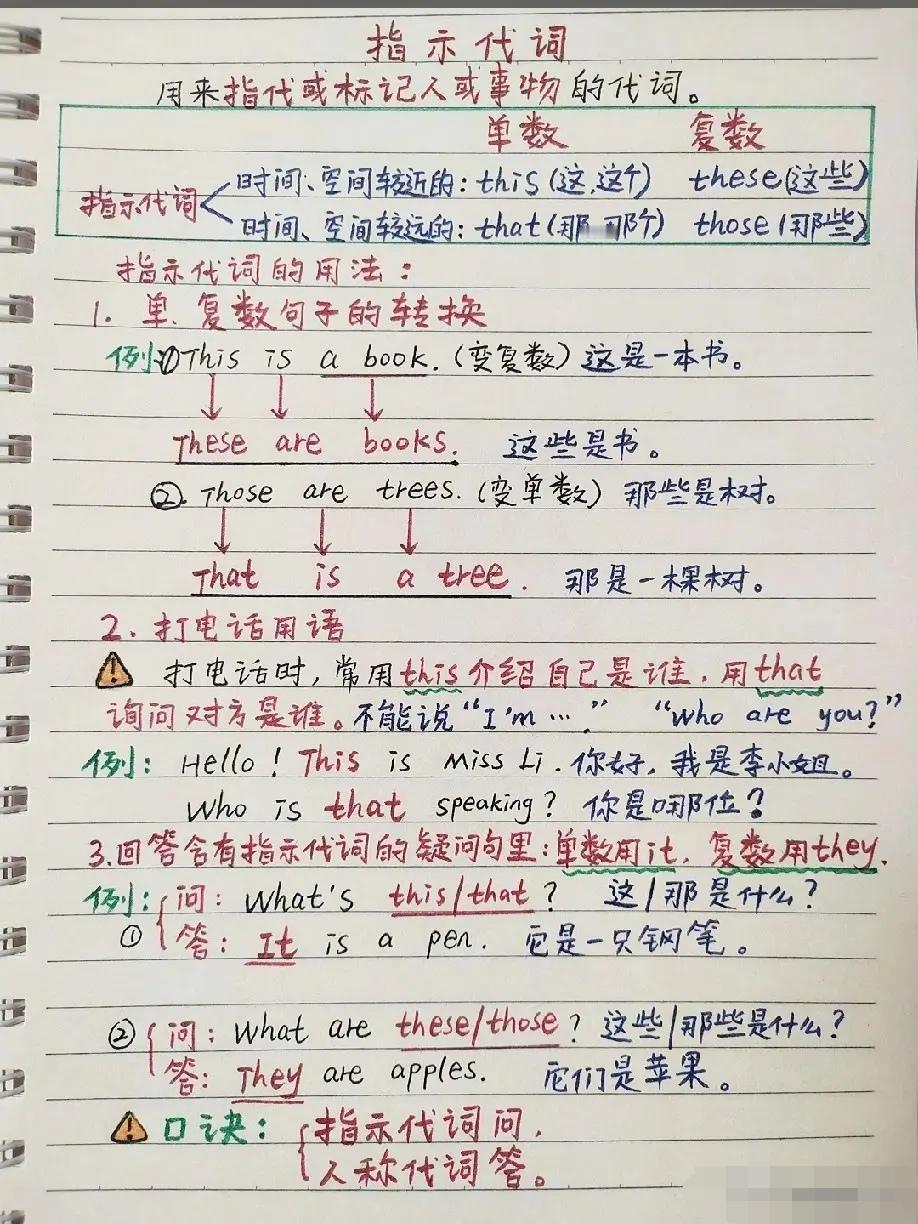 指示代词
用来指代或标记人或事物的代词。
单数 复数
指示代词
时间、空间较近的：this (这,这个) these (这些)
时间、空间较远的：that (那 那个) those (那些)
指示代词的用法：
1. 单.复数句子的转换
例:①This is a book. (变复数) 这是一本书。
These are books. 这些是书。
②. Those are trees. (变单数) 那些是树。
That is a tree. 那是一棵树。
2. 打电话用语
打电话时,常用this介绍自己是谁,用that
询问对方是谁。不能说“I'm …” “Who are you?”
例: Hello! This is Miss Li. 你好,我是李小姐。
Who is that speaking? 你是哪位?
3.回答含有指示代词的疑问句里:单数用it, 复数用they.
例: 问: What's this/that? 这/那是什么?
① 答: It is a pen. 它是一只钢笔。
② 问: What are these/those? 这些/那些是什么?
答: They are apples. 它们是苹果。
口诀: 指示代词问,
人称代词答。